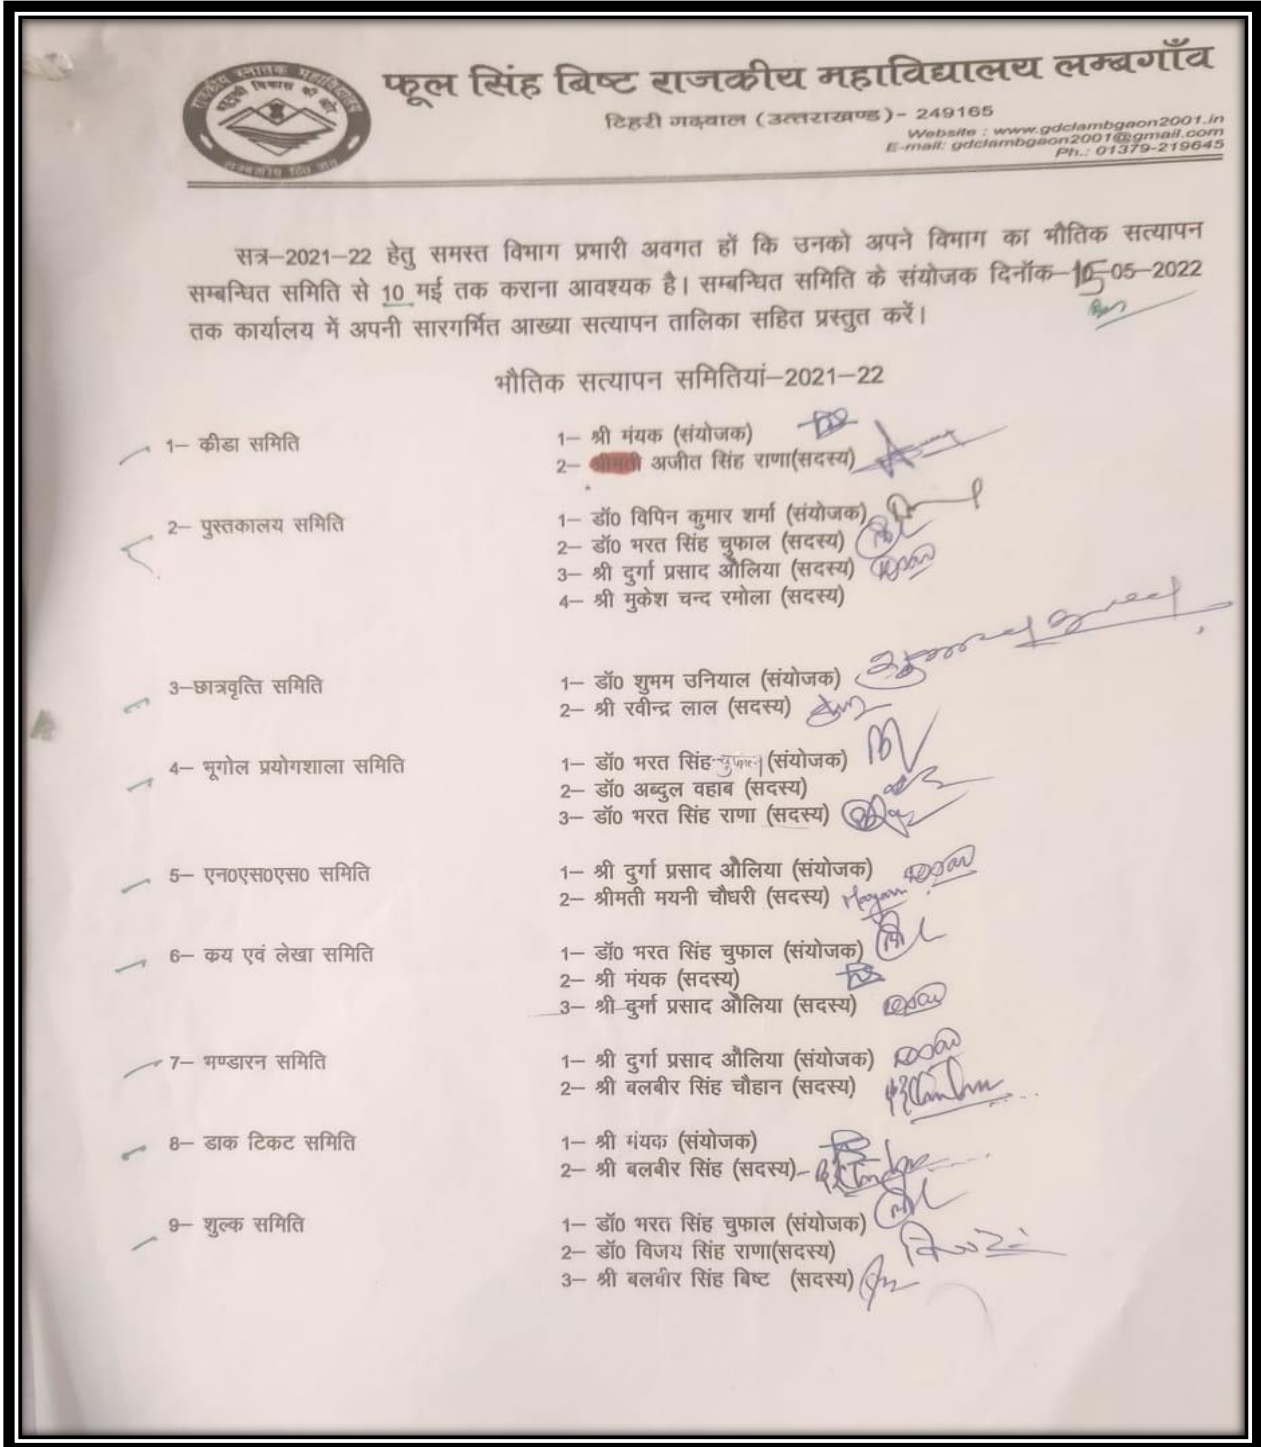 राजकीय स्नातक महाविद्यालय
फूल सिंह बिष्ट राजकीय महाविद्यालय लम्बगाँव
टिहरी गढ़वाल (उत्तराखण्ड)- 249165
Website : www.gdclambgaon2001.in
E-mail: gdclambgaon2001@gmail.com
Ph.: 01379-219645
सत्र–2021–22 हेतु समस्त विभाग प्रभारी अवगत हों कि उनको अपने विभाग का भौतिक सत्यापन
सम्बन्धित समिति से 10 मई तक कराना आवश्यक है। सम्बन्धित समिति के संयोजक दिनॉक–15–05–2022
तक कार्यालय में अपनी सारगर्भित आख्या सत्यापन तालिका सहित प्रस्तुत करें।
भौतिक सत्यापन समितियां–2021–22
1– कीडा समिति
1– श्री मंयक (संयोजक)
2– श्रीमती अजीत सिंह राणा(सदस्य)
2– पुस्तकालय समिति
1– डॉ0 विपिन कुमार शर्मा (संयोजक)
2– डॉ0 भरत सिंह चुफाल (सदस्य)
3– श्री दुर्गा प्रसाद औलिया (सदस्य)
4– श्री मुकेश चन्द रमोला (सदस्य)
3–छात्रवृत्ति समिति
1– डॉ0 शुभम उनियाल (संयोजक)
2– श्री रवीन्द्र लाल (सदस्य)
4– भूगोल प्रयोगशाला समिति
1– डॉ0 भरत सिंह चुफाल (संयोजक)
2– डॉ0 अब्दुल वहाब (सदस्य)
3– डॉ0 भरत सिंह राणा (सदस्य)
5– एन0एस0एस0 समिति
1– श्री दुर्गा प्रसाद औलिया (संयोजक)
2– श्रीमती मयनी चौघरी (सदस्य)
6– कय एवं लेखा समिति
1– डॉ0 भरत सिंह चुफाल (संयोजक)
2– श्री मंयक (सदस्य)
3– श्री दुर्गा प्रसाद औलिया (सदस्य)
7– भण्डारन समिति
1– श्री दुर्गा प्रसाद औलिया (संयोजक)
2– श्री बलबीर सिंह चौहान (सदस्य)
8– डाक टिकट समिति
1– श्री मंयक (संयोजक)
2– श्री बलबीर सिंह (सदस्य)
9– शुल्क समिति
1– डॉ0 भरत सिंह चुफाल (संयोजक)
2– डॉ0 विजय सिंह राणा(सदस्य)
3– श्री बलबीर सिंह बिष्ट (सदस्य)